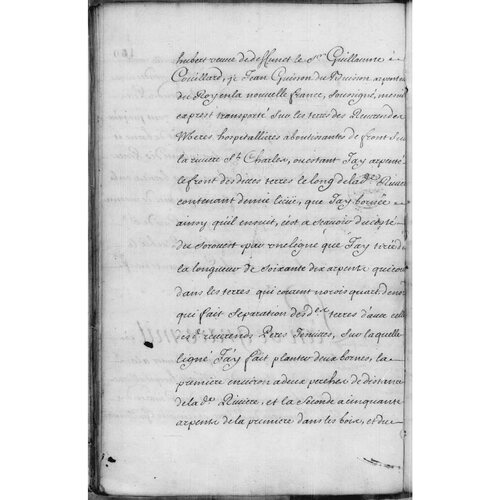 hubert veuve de deffunct le Sr. Guillaume
Couillard, je Jean Guion du Buisson arpenteu
du Roy en la nouvelle france, soussigné, me sui
exprest transporté sur les terres des Reverendes
Meres hospitallieres aboutissantes de front sur
la riviere St. Charles, ou estant J'ay arpenté
le front desdites terres le long de lade. Riviere
contenant demie lieüe, que J'ay bornée
ainsy qu'il ensuit, c'est a scavoir du costé
du sorouest par une ligne que J'ay tirée de
la longueur de soixante dix arpents qui court
dans les terres qui courent norois quart de nor
qui fait separation desdes. terres d'avec celles
des reverends Peres Jesuites, sur laquelle
ligne J'ay fait planter deux bornes, la
premiere environ a deux perches de distance
de lade. Riviere, et la seconde a cinquante
arpents de la premiere dans les bois, et du